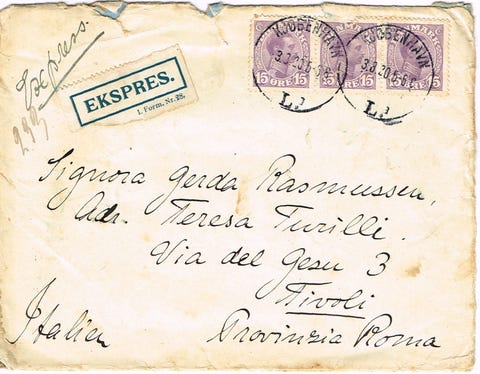 Express.
EKSPRES.
1. Form. Nr. 28.
KJØBENHAVN
3.3.20.5-6
L.3
KJØBENHAVN
3.3.20.5-6
L.3
DANMARK
15 ØRE 15
15
15
15
Signora Gerda Rasmussen,
Adr. Teresa Turilli.
Via del Gesu 3
Tivoli
Italien Provinzia Roma